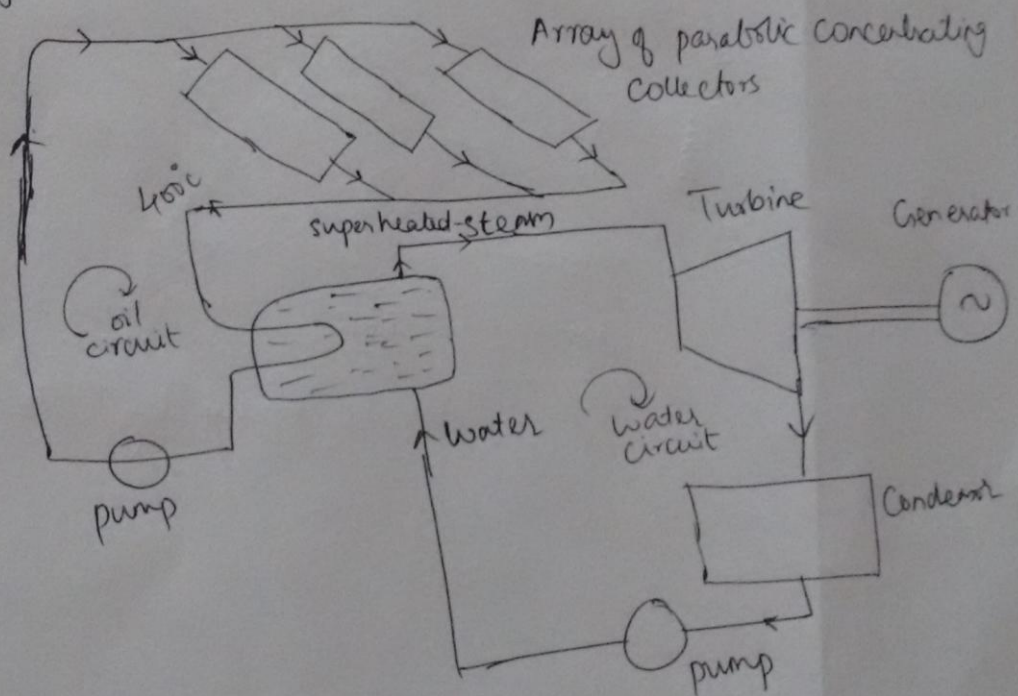 Array of parabolic concentrating
collectors
400°c
superheated-steam
Turbine
Generator
~
oil
circuit
water
water
circuit
pump
Condensr
pump